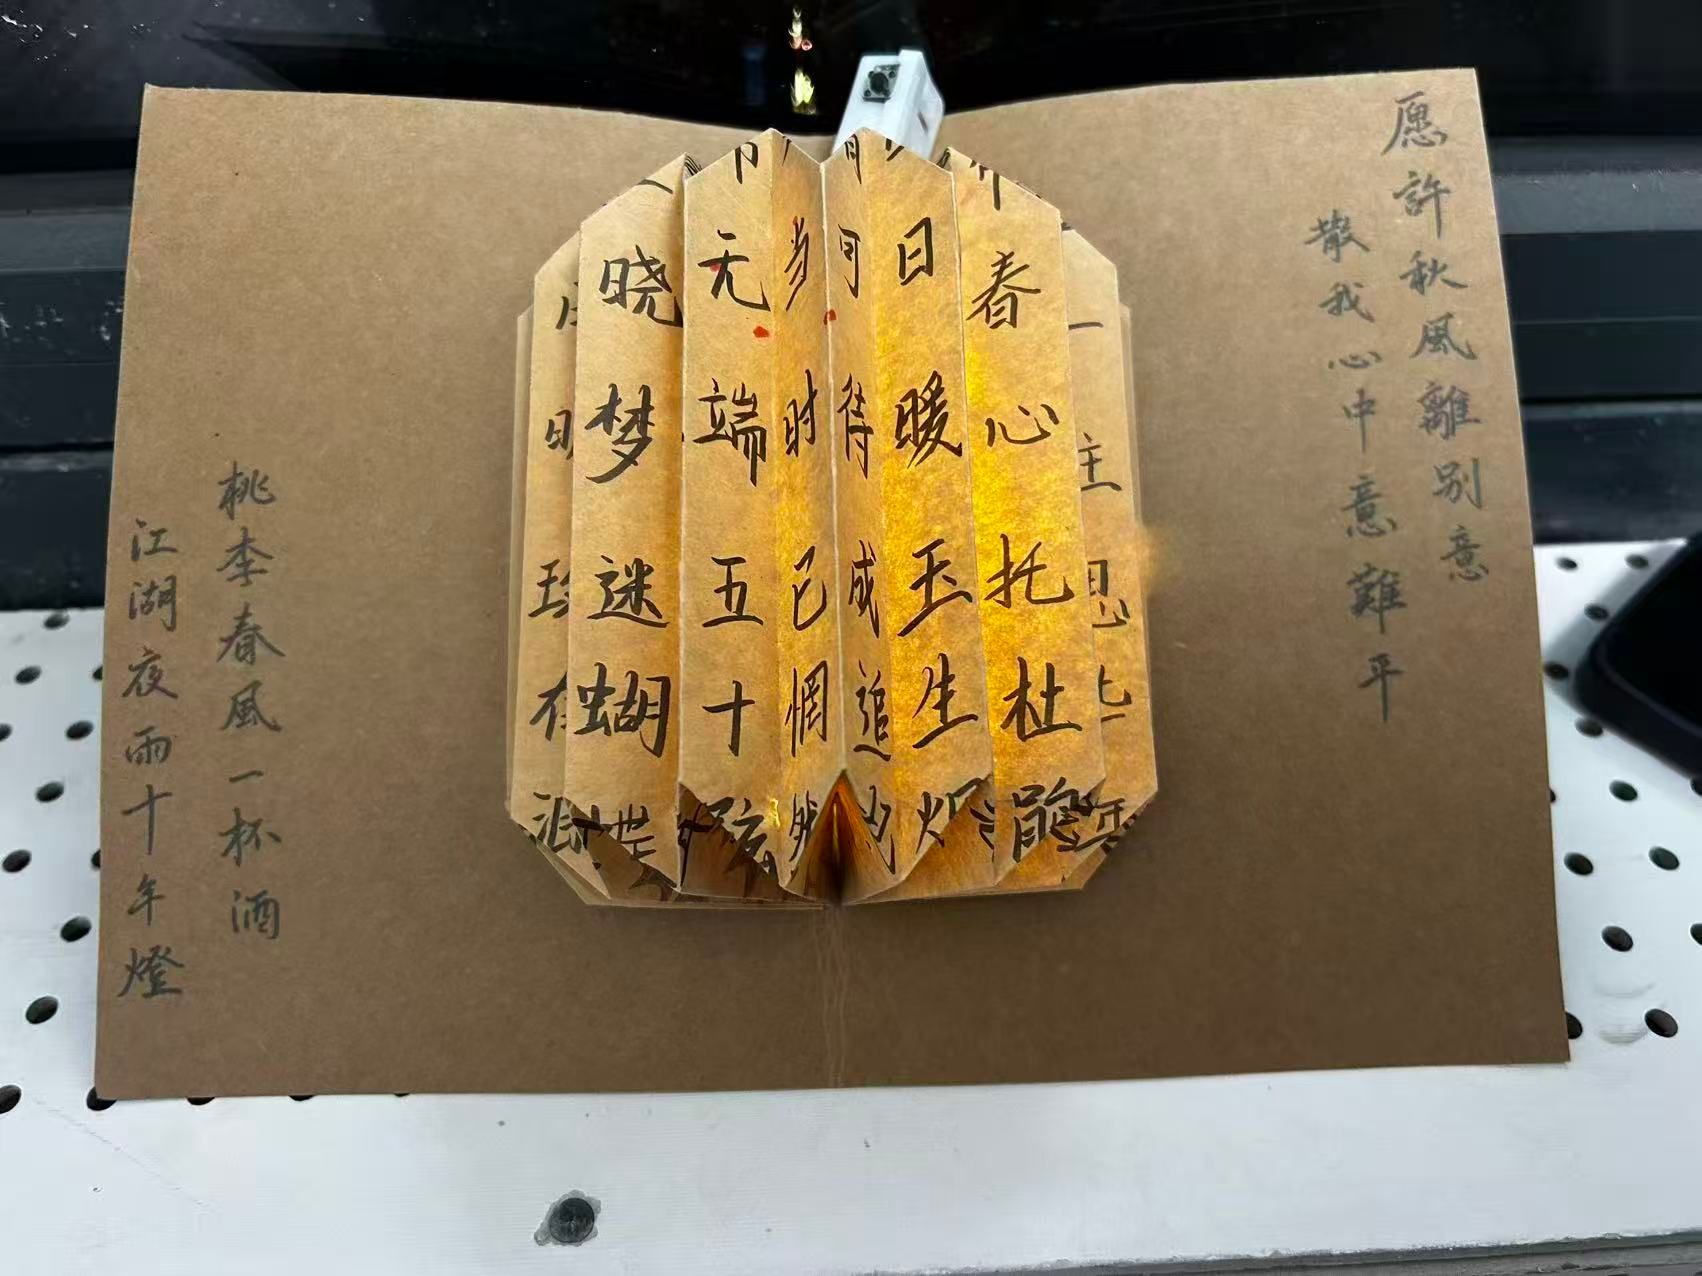 愿許秋風離别意
散我心中意難平
春心托杜鹃
日暖玉生烟
可待成追
当时已惘然
无端五十弦
晓梦迷蝴蝶
桃李春風一杯酒
江湖夜雨十年燈